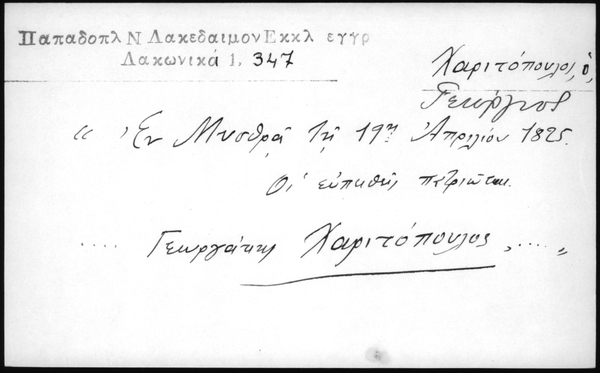 Παπαδοπλ Ν Λακεδαιμον Εκκλ εγγρ
Λακωνικά 1, 347
Χαριτόπουλος, ὁ,
Γεώργιος
“ Ἐν Μυσθρᾷ τῇ 19ῃ Ἀπριλίου 1825.
Οἱ εὐπειθεῖς πατριῶται.
..... Γεωργάκης Χαριτόπουλος, ..... „